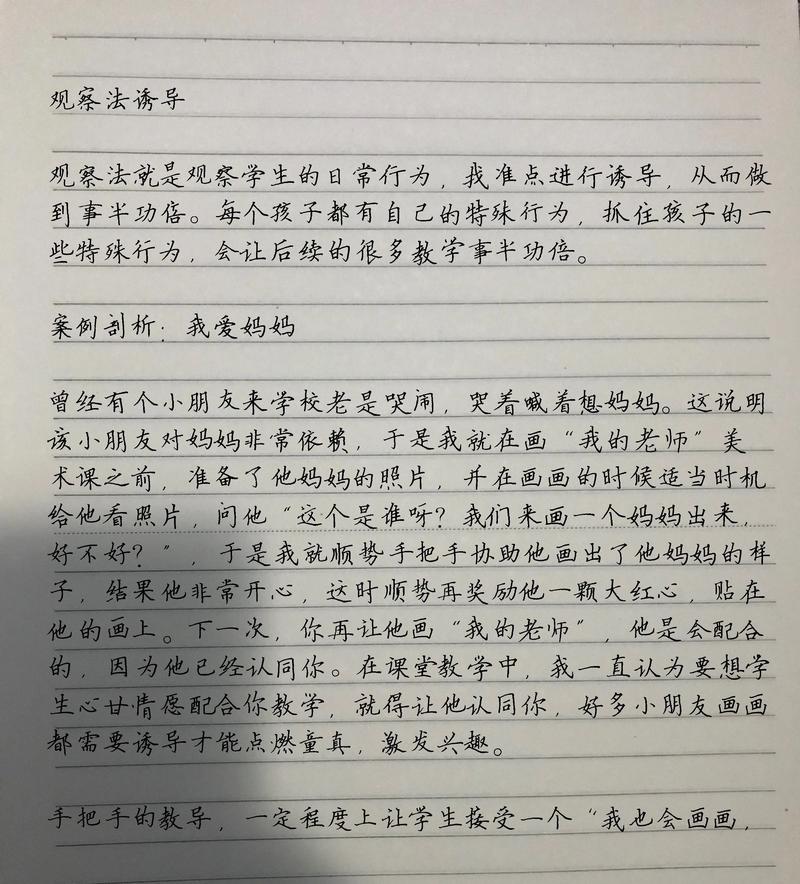 观察法诱导
观察法就是观察学生的日常行为，我准点进行诱导，从而做
到事半功倍。每个孩子都有自己的特殊行为，抓住孩子的一
些特殊行为，会让后续的很多教学事半功倍。
案例剖析：我爱妈妈
曾经有个小朋友来学校老是哭闹，哭着喊着想妈妈。这说明
该小朋友对妈妈非常依赖，于是我就在画“我的老师”美
术课之前，准备了他妈妈的照片，并在画画的时候适当时机
给他看照片，问他“这个是谁呀？我们来画一个妈妈出来，
好不好？”，于是我就顺势手把手协助他画出了他妈妈的样
子，结果他非常开心，这时顺势再奖励他一颗大红心，贴在
他的画上。下一次，你再让他画“我的老师”，他是会配合
的，因为他已经认同你。在课堂教学中，我一直认为要想学
生心甘情愿配合你教学，就得让他认同你，好多小朋友画画
都需要诱导才能点燃童真，激发兴趣。
手把手的教导，一定程度上让学生接受一个“我也会画画，